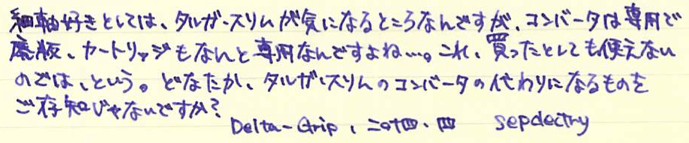 細軸好きとしては、タルガ・スリムが気になるところなんですが、コンバータは専用で
廃版、カートリッジもなんと専用なんですよね…。これ、買ったとしても使えない
のでは、という。どなたか、タルガ・スリムのコンバータの代わりになるものを
ご存知じゃないですか?
Delta-Grip、ニ〇十四・四 sepdectny